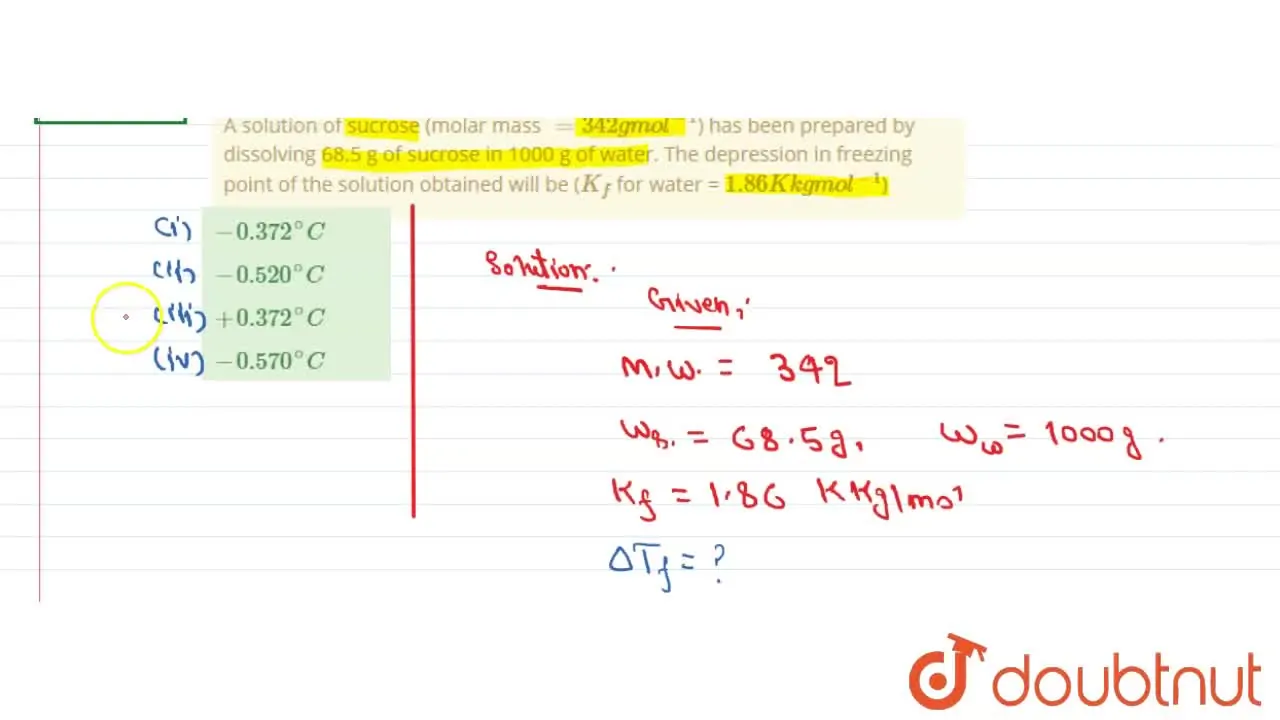 A solution of sucrose (molar mass = 342gmol⁻¹) has been prepared by
dissolving 68.5 g of sucrose in 1000 g of water. The depression in freezing
point of the solution obtained will be (K_f for water = 1.86Kkgmol⁻¹)
(i) −0.372°C
(ii) −0.520°C
(iii) +0.372°C
(iv) −0.570°C
Solution:
Given,
M.W. = 342
W_B. = 68.5g, W_w = 1000g.
K_f = 1.86 K Kg/mol
ΔT_f = ?
doubtnut